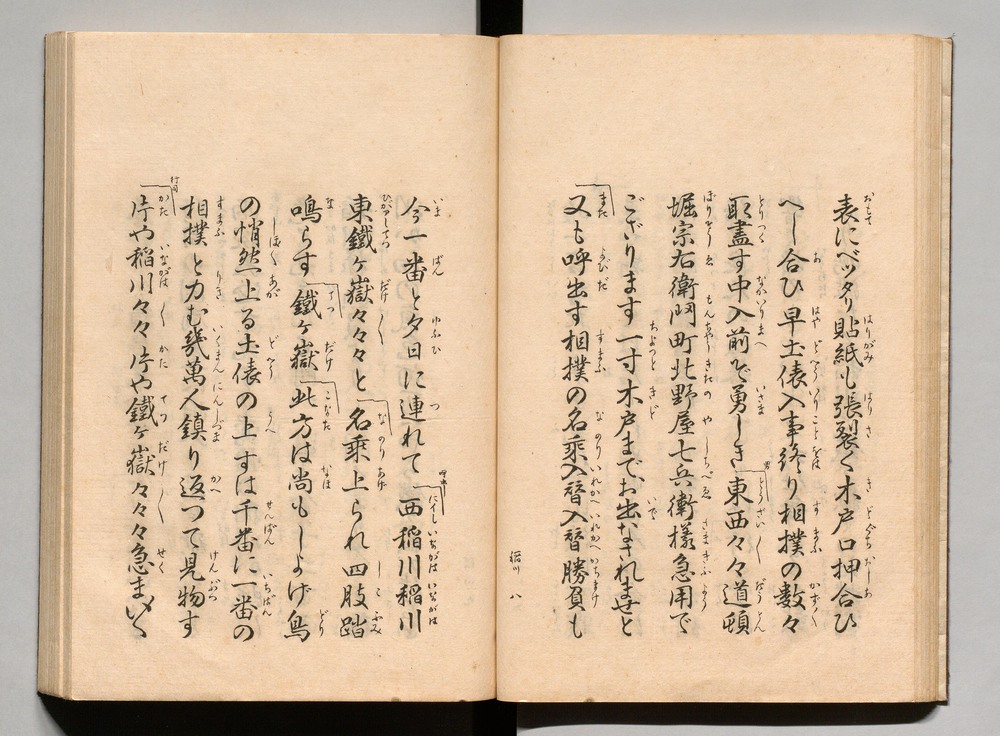 表にベッタリ貼紙も張裂く木戸口押合ひ
へし合ひ早土俵入事終り相撲の数々
取盡す中入前で勇しき東西々々道頓
堀宗右衛門町北野屋七兵衛様急用で
ござります一寸木戸までお出なされませと
又も呼出す相撲の名乗入替入替勝負も
稲川 八
今一番と夕日に連れて西稲川稲川
東鐵ヶ嶽々々々と名乗上られ四肢踏
鳴らす鐵ヶ嶽此方は尚もしよげ鳥
の悄然上る土俵の上すは千番に一番の
相撲と力む幾萬人鎮り返つて見物す
行司
片や稲川々々片や鐵ヶ嶽々々々急まい〱